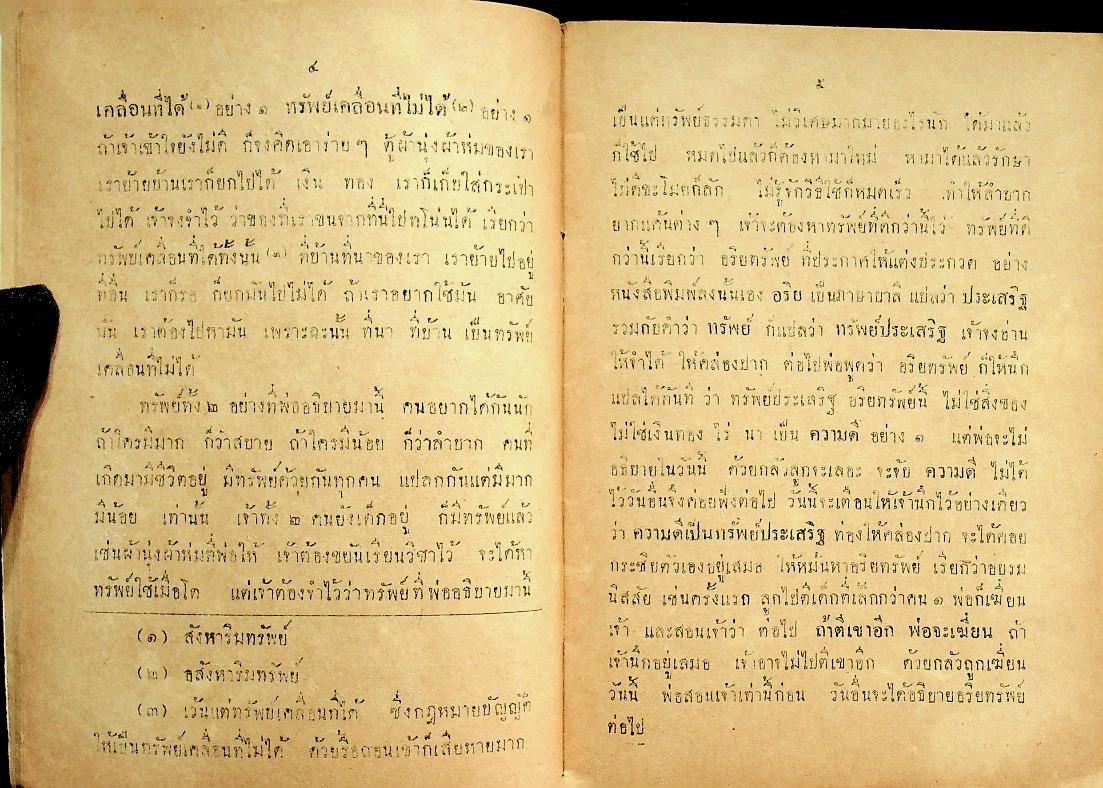 ๔
เคลื่อนที่ได้ (๑) อย่าง ๑ ทรัพย์เคลื่อนที่ไม่ได้ (๒) อย่าง ๑
ถ้าเจ้าเข้าใจยังไม่ดี ก็จงคิดเอาง่าย ๆ ตู้ผ้านุ่งผ้าห่มของเรา
เราย้ายบ้านเราก็ยกไปได้ เงิน ทอง เราก็เก็บใส่กระเป๋า
ไปได้ เจ้าจงจำไว้ ว่าของที่เราขนจากที่นี่ไปที่โน่นได้ เรียกว่า
ทรัพย์เคลื่อนที่ได้ทั้งนั้น (๓) ที่บ้านที่นาของเรา เราย้ายไปอยู่
ที่อื่น เราก็รอ ก็ยกมันไปไม่ได้ ถ้าเราอยากใช้มัน อาศัย
มัน เราต้องไปหามัน เพราะฉะนั้น ที่นา ที่บ้าน เป็นทรัพย์
เคลื่อนที่ไม่ได้
ทรัพย์ทั้ง ๒ อย่างที่พ่ออธิบายมานี้ คนอยากได้กันนัก
ถ้าใครมีมาก ก็ว่าสบาย ถ้าใครมีน้อย ก็ว่าลำบาก คนที่
เกิดมามีชีวิตอยู่ มีทรัพย์ด้วยกันทุกคน แปลกกันแต่มีมาก
มีน้อย เท่านั้น เจ้าทั้ง ๒ คนยังเด็กอยู่ ก็มีทรัพย์แล้ว
เช่นผ้านุ่งผ้าห่มที่พ่อให้ เจ้าต้องขยันเรียนวิชาไว้ จะได้หา
ทรัพย์ใช้เมื่อโต แต่เจ้าต้องจำไว้ว่าทรัพย์ที่ พ่ออธิบายมานี้
(๑) สังหาริมทรัพย์
(๒) อสังหาริมทรัพย์
(๓) เว้นแต่ทรัพย์เคลื่อนที่ได้ ซึ่งกฎหมายบัญญัติ
ให้เป็นทรัพย์เคลื่อนที่ไม่ได้ ด้วยรื้อถอนเข้าก็เสียหายมาก
๕
เป็นแต่ทรัพย์ธรรมดา ไม่วิเศษมากมายอะไรนัก ได้มาแล้ว
ก็ใช้ไป หมดไปแล้วก็ต้องหามาใหม่ หามาได้แล้วรักษา
ไม่ดีขะโมยก็ลัก ไม่รู้จักวิธีใช้ก็หมดเร็ว ทำให้ลำบาก
ยากแค้นต่าง ๆ เจ้าจะต้องหาทรัพย์ที่ดีกว่านี้ไว้ ทรัพย์ที่ดี
กว่านี้เรียกว่า อริยทรัพย์ ที่ประกาศให้แต่งประกวด อย่าง
หนังสือพิมพ์ลงนั้นเอง อริย เป็นภาษาบาลี แปลว่า ประเสริฐ
รวมกับคำว่า ทรัพย์ ก็แปลว่า ทรัพย์ประเสริฐ เจ้าจงอ่าน
ให้จำได้ ให้คล่องปาก ต่อไปพ่อพูดว่า อริยทรัพย์ ก็ให้นึก
แปลได้ทันที ว่า ทรัพย์ประเสริฐ อริยทรัพย์นี้ ไม่ใช่สิ่งของ
ไม่ใช่เงินทอง ไร่ นา เป็น ความดี อย่าง ๑ แต่พ่อจะไม่
อธิบายในวันนี้ ด้วยกลัวลูกจะเลอะ จะจับ ความดี ไม่ได้
ไว้วันอื่นจึงค่อยฟังต่อไป วันนี้จะเตือนให้เจ้านึกไว้อย่างเดียว
ว่า ความดีเป็นทรัพย์ประเสริฐ ท่องให้คล่องปาก จะได้คอย
กระซิบตัวเองอยู่เสมอ ให้หมั่นหาอริยทรัพย์ เรียกว่าอบรม
นิสสัย เช่นครั้งแรก ลูกไปตีเด็กที่เล็กกว่าคน ๑ พ่อก็เฆี่ยน
เจ้า และสอนเจ้าว่า ต่อไป ถ้าตีเขาอีก พ่อจะเฆี่ยน ถ้า
เจ้านึกอยู่เสมอ เจ้าอาจไม่ไปตีเขาอีก ด้วยกลัวถูกเฆี่ยน
วันนี้ พ่อสอนเจ้าเท่านี้ก่อน วันอื่นจะได้อธิบายอริยทรัพย์
ต่อไป